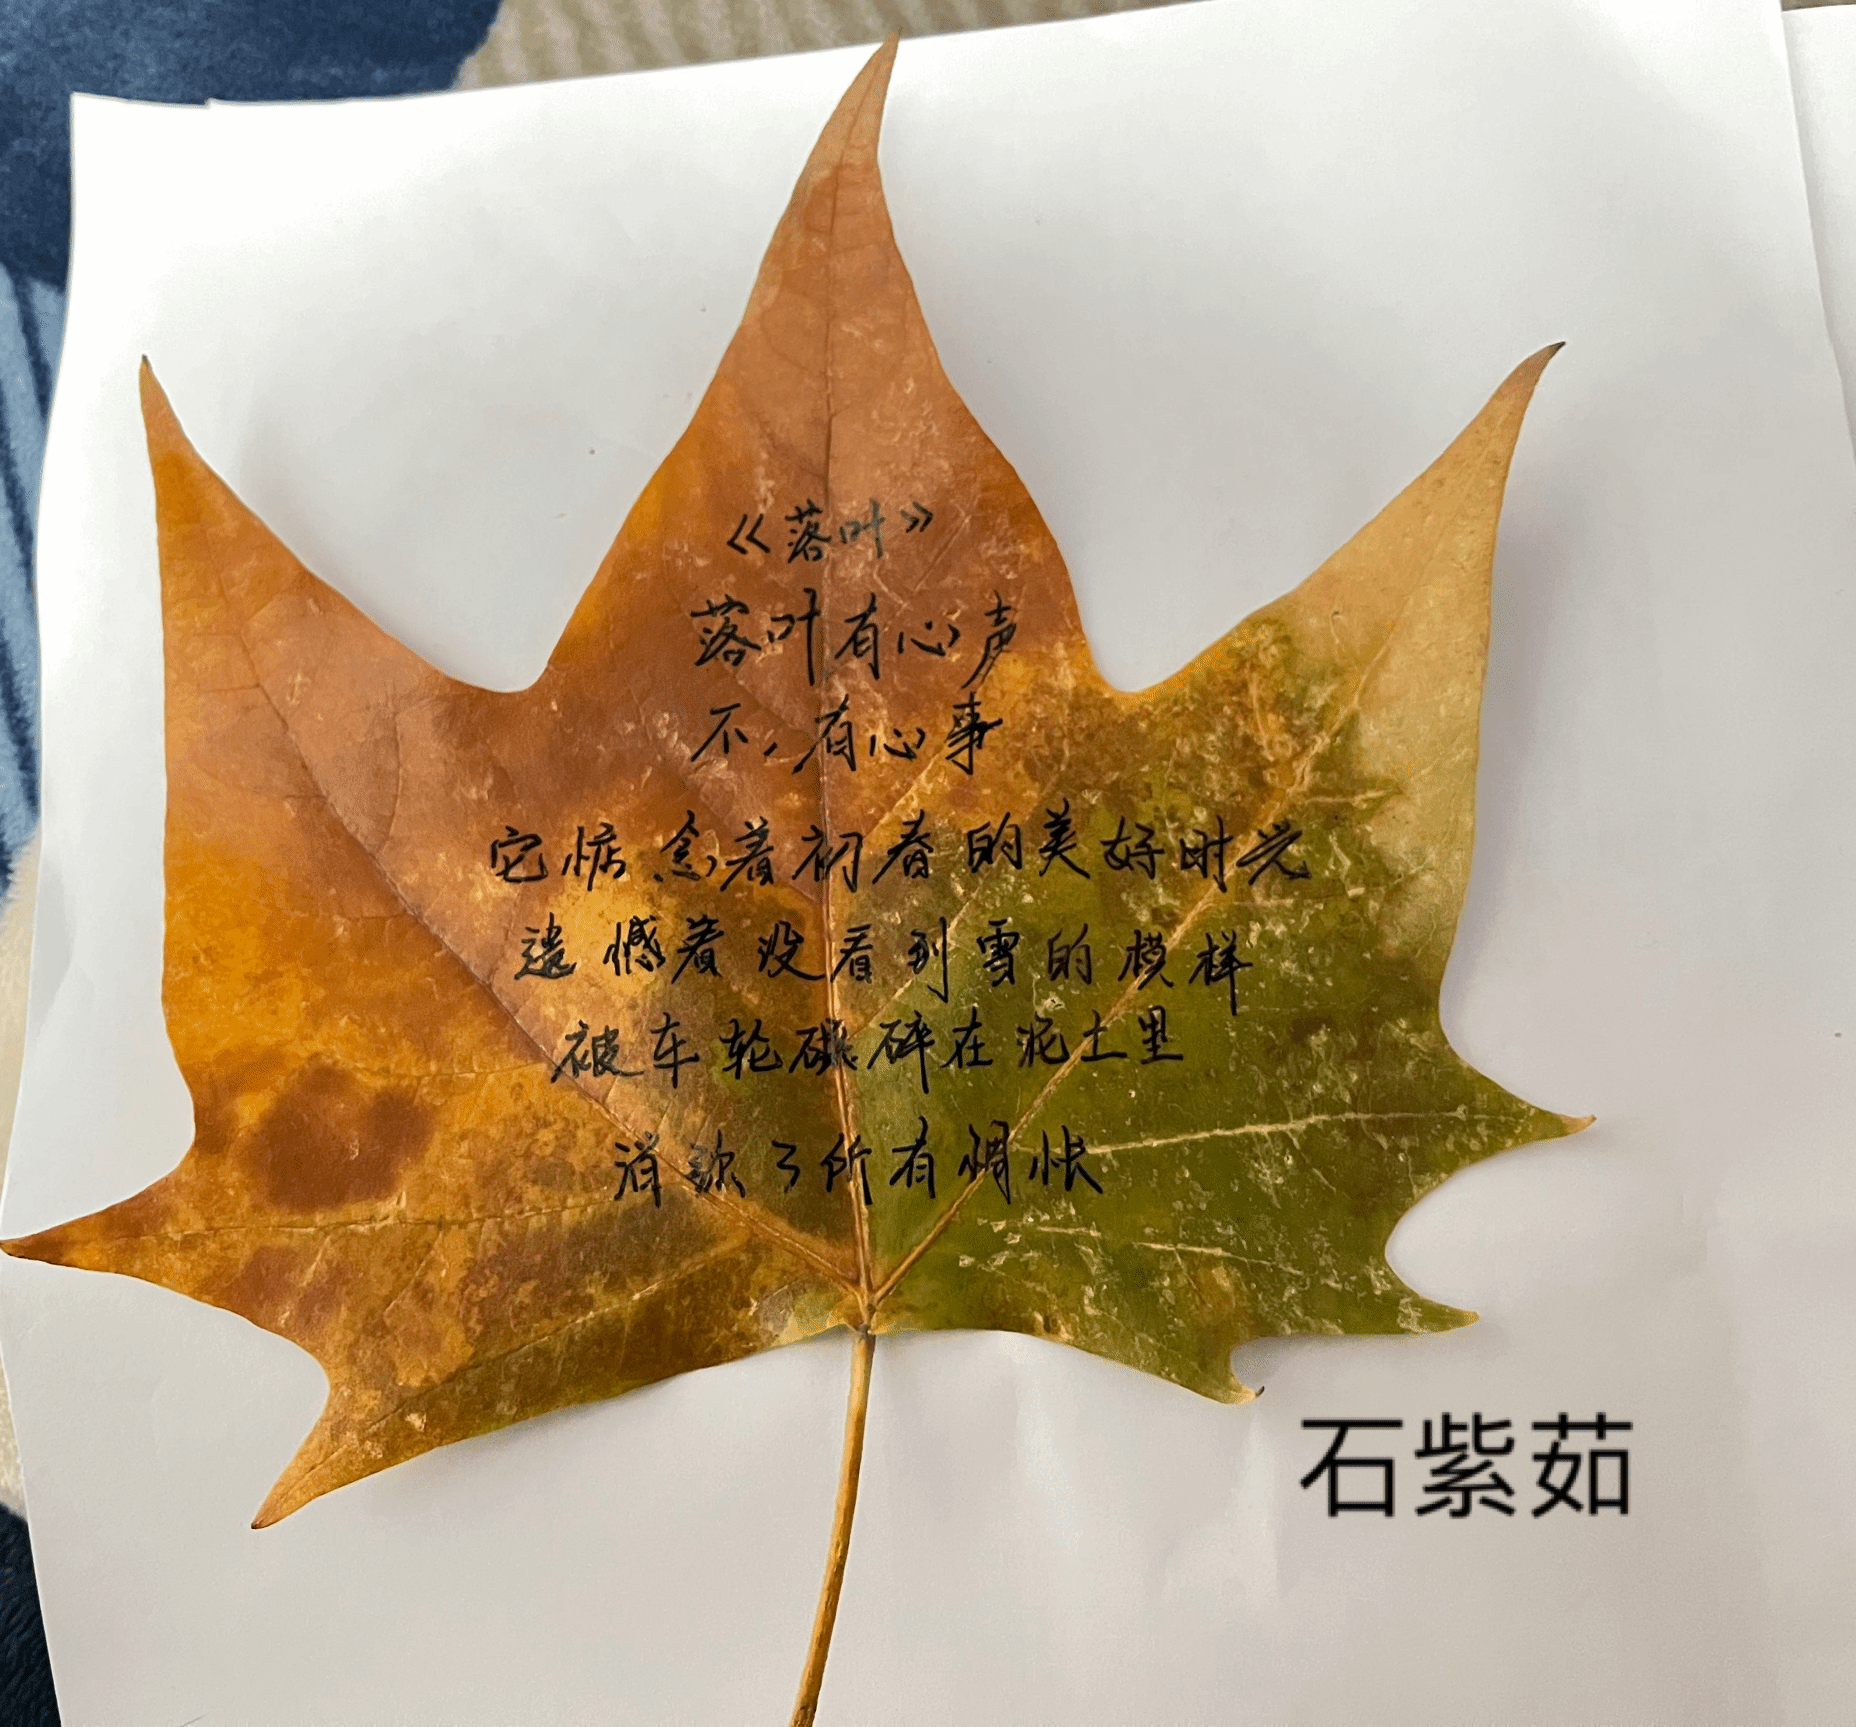 《落叶》
落叶有心声
不,有心事
它惦念着初春的美好时光
遗憾着没看到雪的模样
被车轮碾碎在泥土里
消弥了所有惆怅
石紫茹